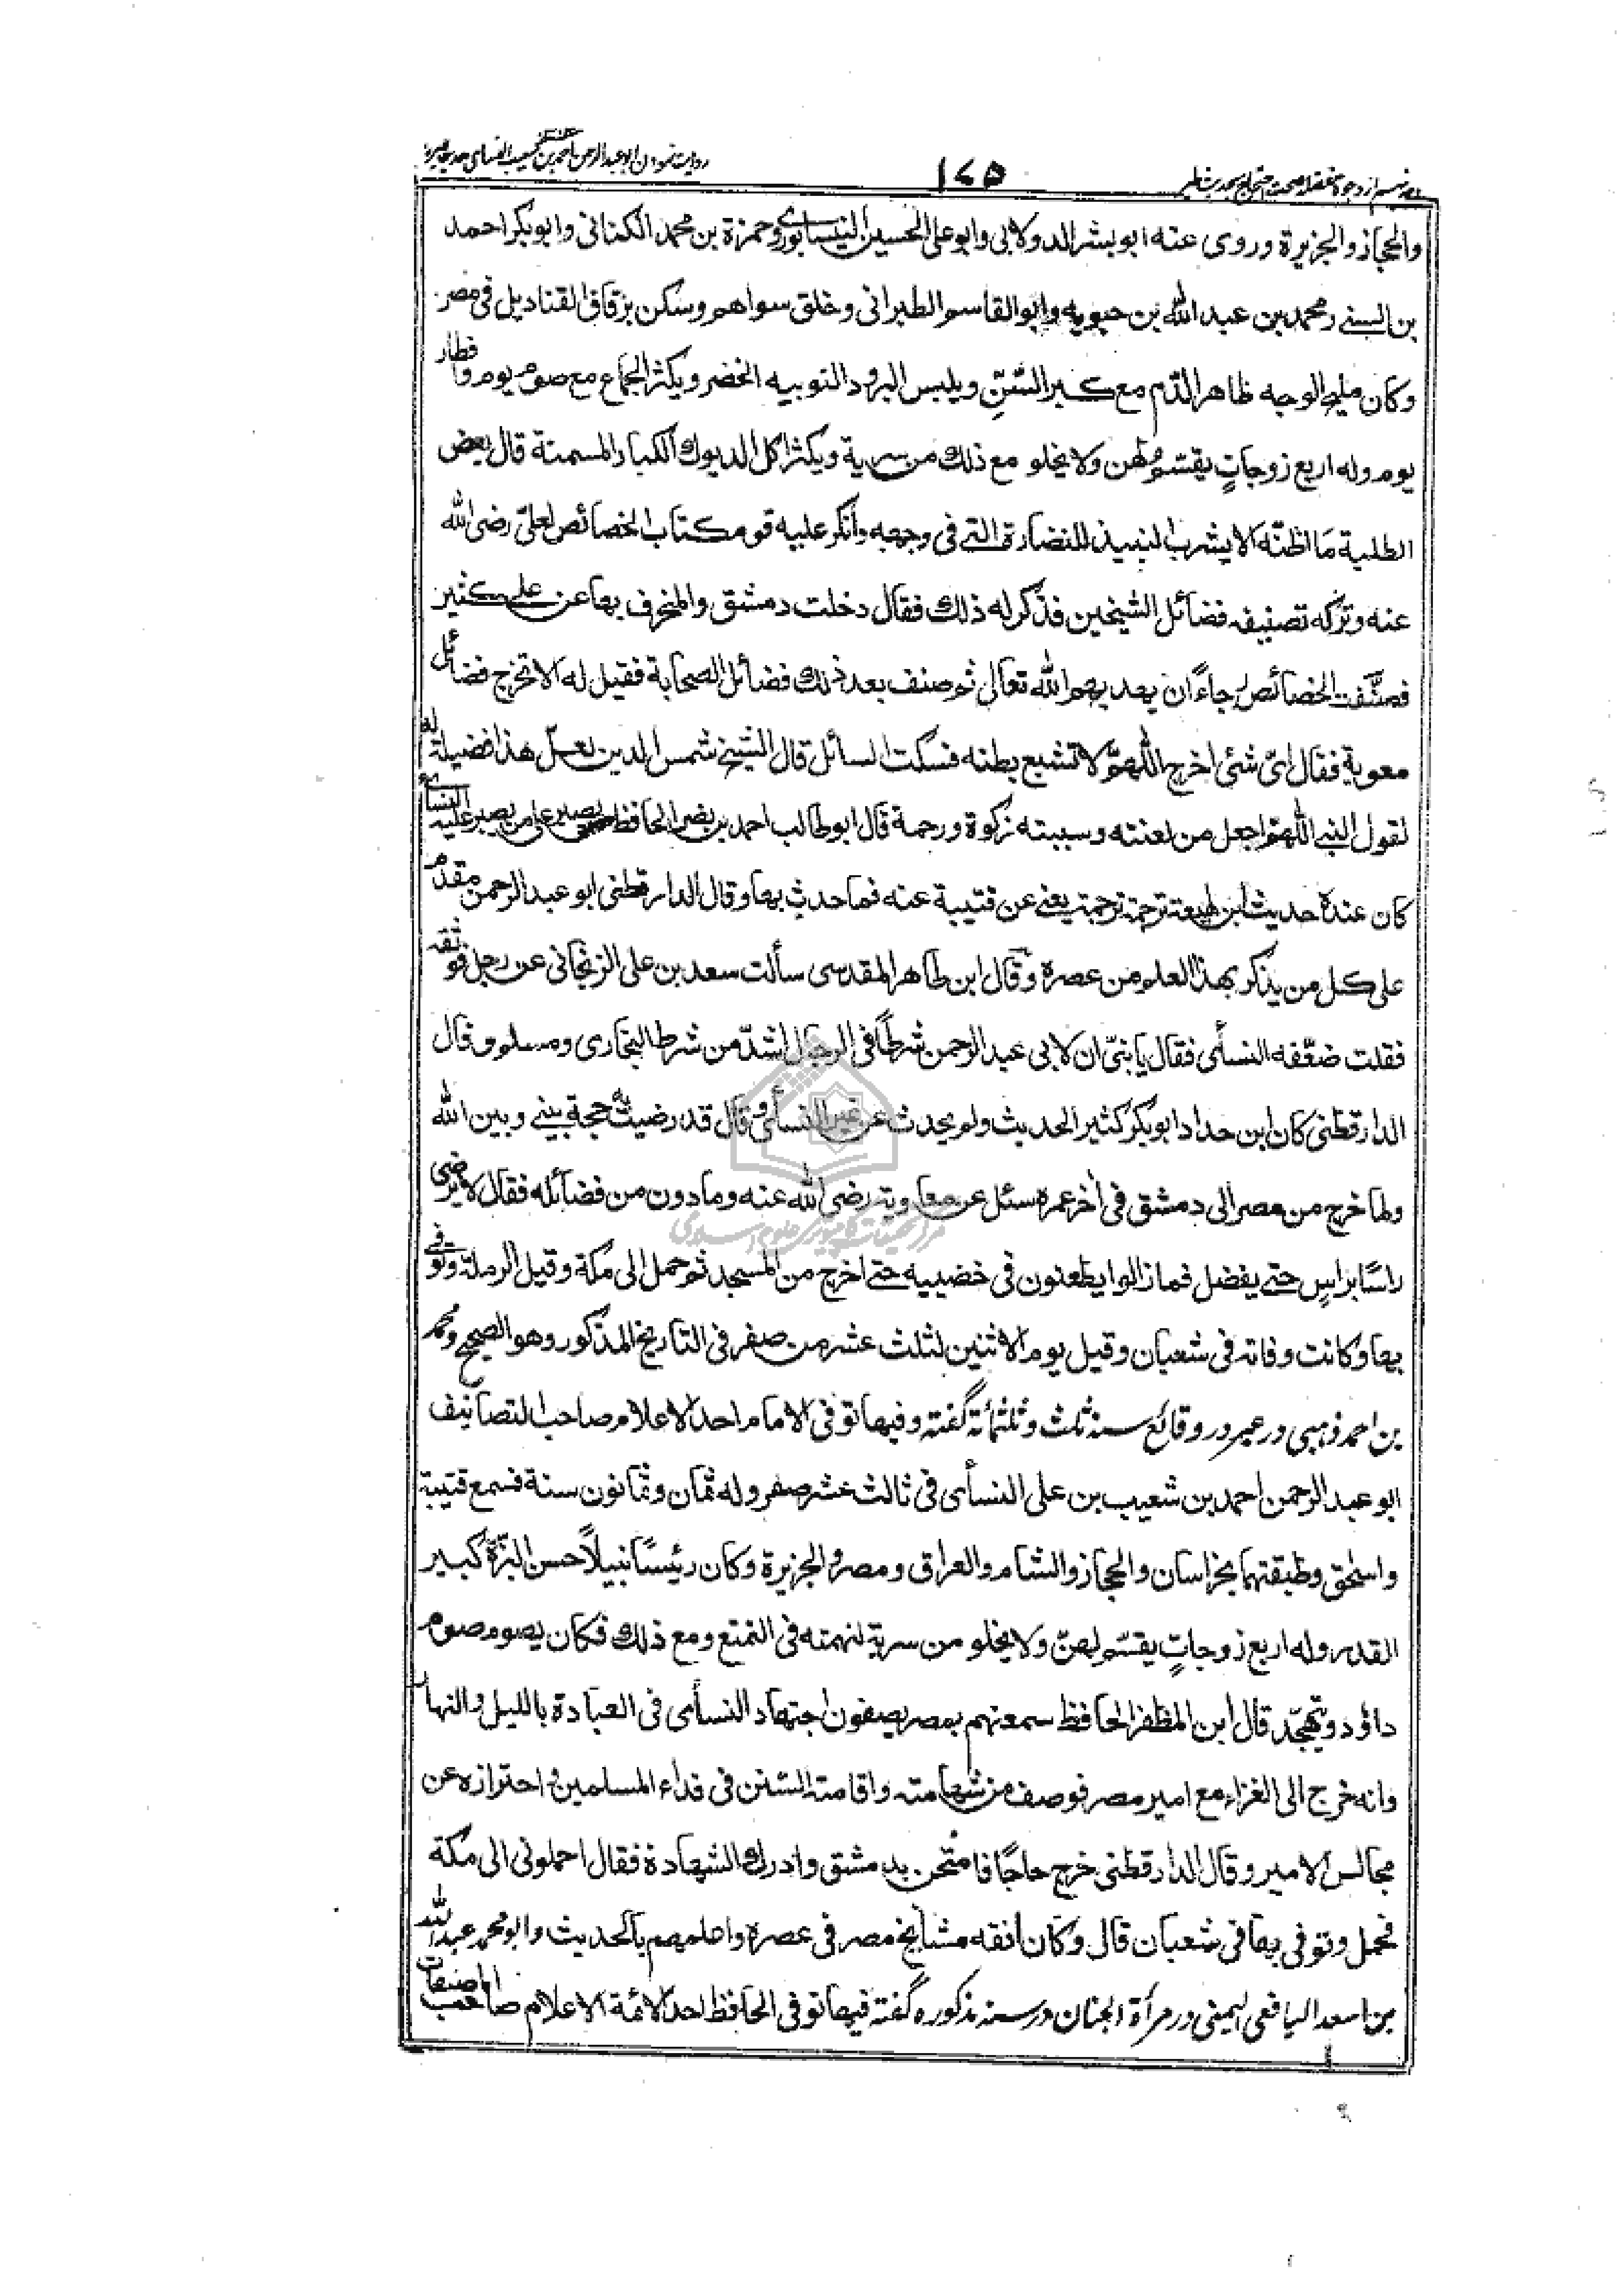 روایت نمودن ابو عبد الرحمن احمد بن شعیب النسائی حدیث طیر را
۱۷۵
والحجاز والجزيرة وروى عنه ابو بشر الدولابى وابو على الحسين النيسابورى وحمزة بن محمد الكنانى وابو بكر احمد
بن السنى ومحمد بن عبد الله بن حيويه وابو القاسم الطبرانى وخلق سواهم وسكن بزقاق القناديل فى مصر
وكان مليح الوجه ظاهر الدّم مع كبر السّنّ ويلبس البرود النوبيه الخضر ويكثر الجماع مع صوم يوم وافطار
يوم وله اربع زوجاتٍ يقسّم لهن ولا يخلو مع ذلك من سرية ويكثر اكل الديوك الكبار المسمنة قال بعض
الطلبة مَا اظنّه الا يشرب النبيذ للنضارة التى فى وجهه وانكر عليه قوم كتاب الخصائص لعلىّ رضى الله
عنه وتركه تصنيف فضائل الشيخين فذكر له ذلك فقال دخلت دمشق والمنحرف بها عن على كثير
فصنّفت الخصائص رجاءً ان يهديهم الله تعالى ثم صنف بعد ذلك فضائل الصحابة فقيل له الا تخرج فضائل
معوية فقال اىّ شئ اخرج اللّهمّ لا تشبع بطنه فسكت السائل قال الشيخ شمس الدين لعلّ هذا فضيلة له
لقول النبى اللّهمّ اجعل من لعنته وسببته زكوة ورحمة قال ابو طالب احمد بن نضر الحافظ من يصبر على من يصبر عليه النسائى
كان عنده حديث ابن لهيعة ترجمة ترجمة يعنى عن قتيبة عنه فما حدث بها وقال الدارقطنى ابو عبد الرحمن مقدم
على كل من يذكر بهذا العلم من عصره وقال ابن طاهر المقدسى سألت سعد بن على الزنجانى عن رجل فوثقه
فقلت ضعّفه النسأى فقال يا بنىّ ان لابى عبد الرحمن شرطًا فى الرجال اشدّ من شرط البخارى ومسلم وقال
الدارقطنى كان ابن حداد ابو بكر كثير الحديث ولم يحدث عن غير النسأى وقال قد رضيت به حجة بينى وبين الله
ولما خرج من مصر الى دمشق فى اخر عمره سئل عن معاوية رضى الله عنه وما دون من فضائله فقال لا يرضى
راسًا براسٍ حتى يفضل فما زالوا يطعنون فى خضييه حتى اخرج من المسجد ثم حمل الى مكة وقيل الرملة وتوفى
بها وكانت وفاته فى شعبان وقيل يوم الاثنين لثلث عشر من صفر فى التاريخ المذكور وهو الصحيح ومحمد
بن احمد ذهبى در عبر در وقائع سنه ثلث وثلثمائة گفته وفيها توفى الامام احد الاعلام صاحب التصانيف
ابو عبد الرحمن احمد بن شعيب بن على النسأى فى ثالث عشر صفر وله ثمان وثمانون سنة فسمع قتيبة
واسحٰق وطبقتهما بخراسان والحجاز والشام والعراق ومصر والجزيرة وكان رئيسًا نبيلًا حسن البزّة كبير
القدر وله اربع زوجاتٍ يقسّم لهنّ ولا يخلو من سرية لنهمته فى التمتع ومع ذلك فكان يصوم صوم
داؤد ويتهجّد قال ابن المظفر الحافظ سمعتهم بمصر يصفون اجتهاد النسأى فى العبادة بالليل والنهار
وانه خرج الى الغزاء مع امير مصر فوصف من شهامته واقامته السّنن فى فداء المسلمين واحترازه عن
مجالس الامير وقال الدارقطنى خرج حاجًا فامتحن بدمشق وادرك الشهادة فقال احملونى الى مكة
فحمل وتوفى بها فى شعبان قال وكان افقه مشايخ مصر فى عصره واعلمهم بالحديث وابو محمد عبد الله
بن اسعد اليافعى اليمنى در مرأة الجنان در سنه مذكوره گفته فيها توفى الحافظ احد الائمة الاعلام صاحب المصنفات
مرکز تحقیقات کامپیوتری علوم اسلامی